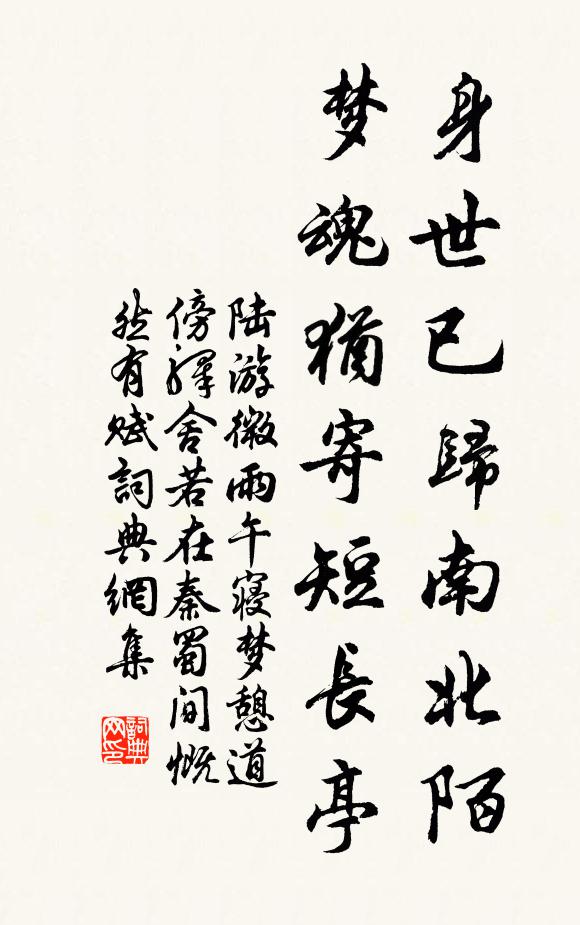 身世已歸南北陌
梦魂猶寄短長亭
陆游微雨午寢梦憩道
傍驛舍若在秦蜀间慨
然有赋詞典網集
詞典
网印